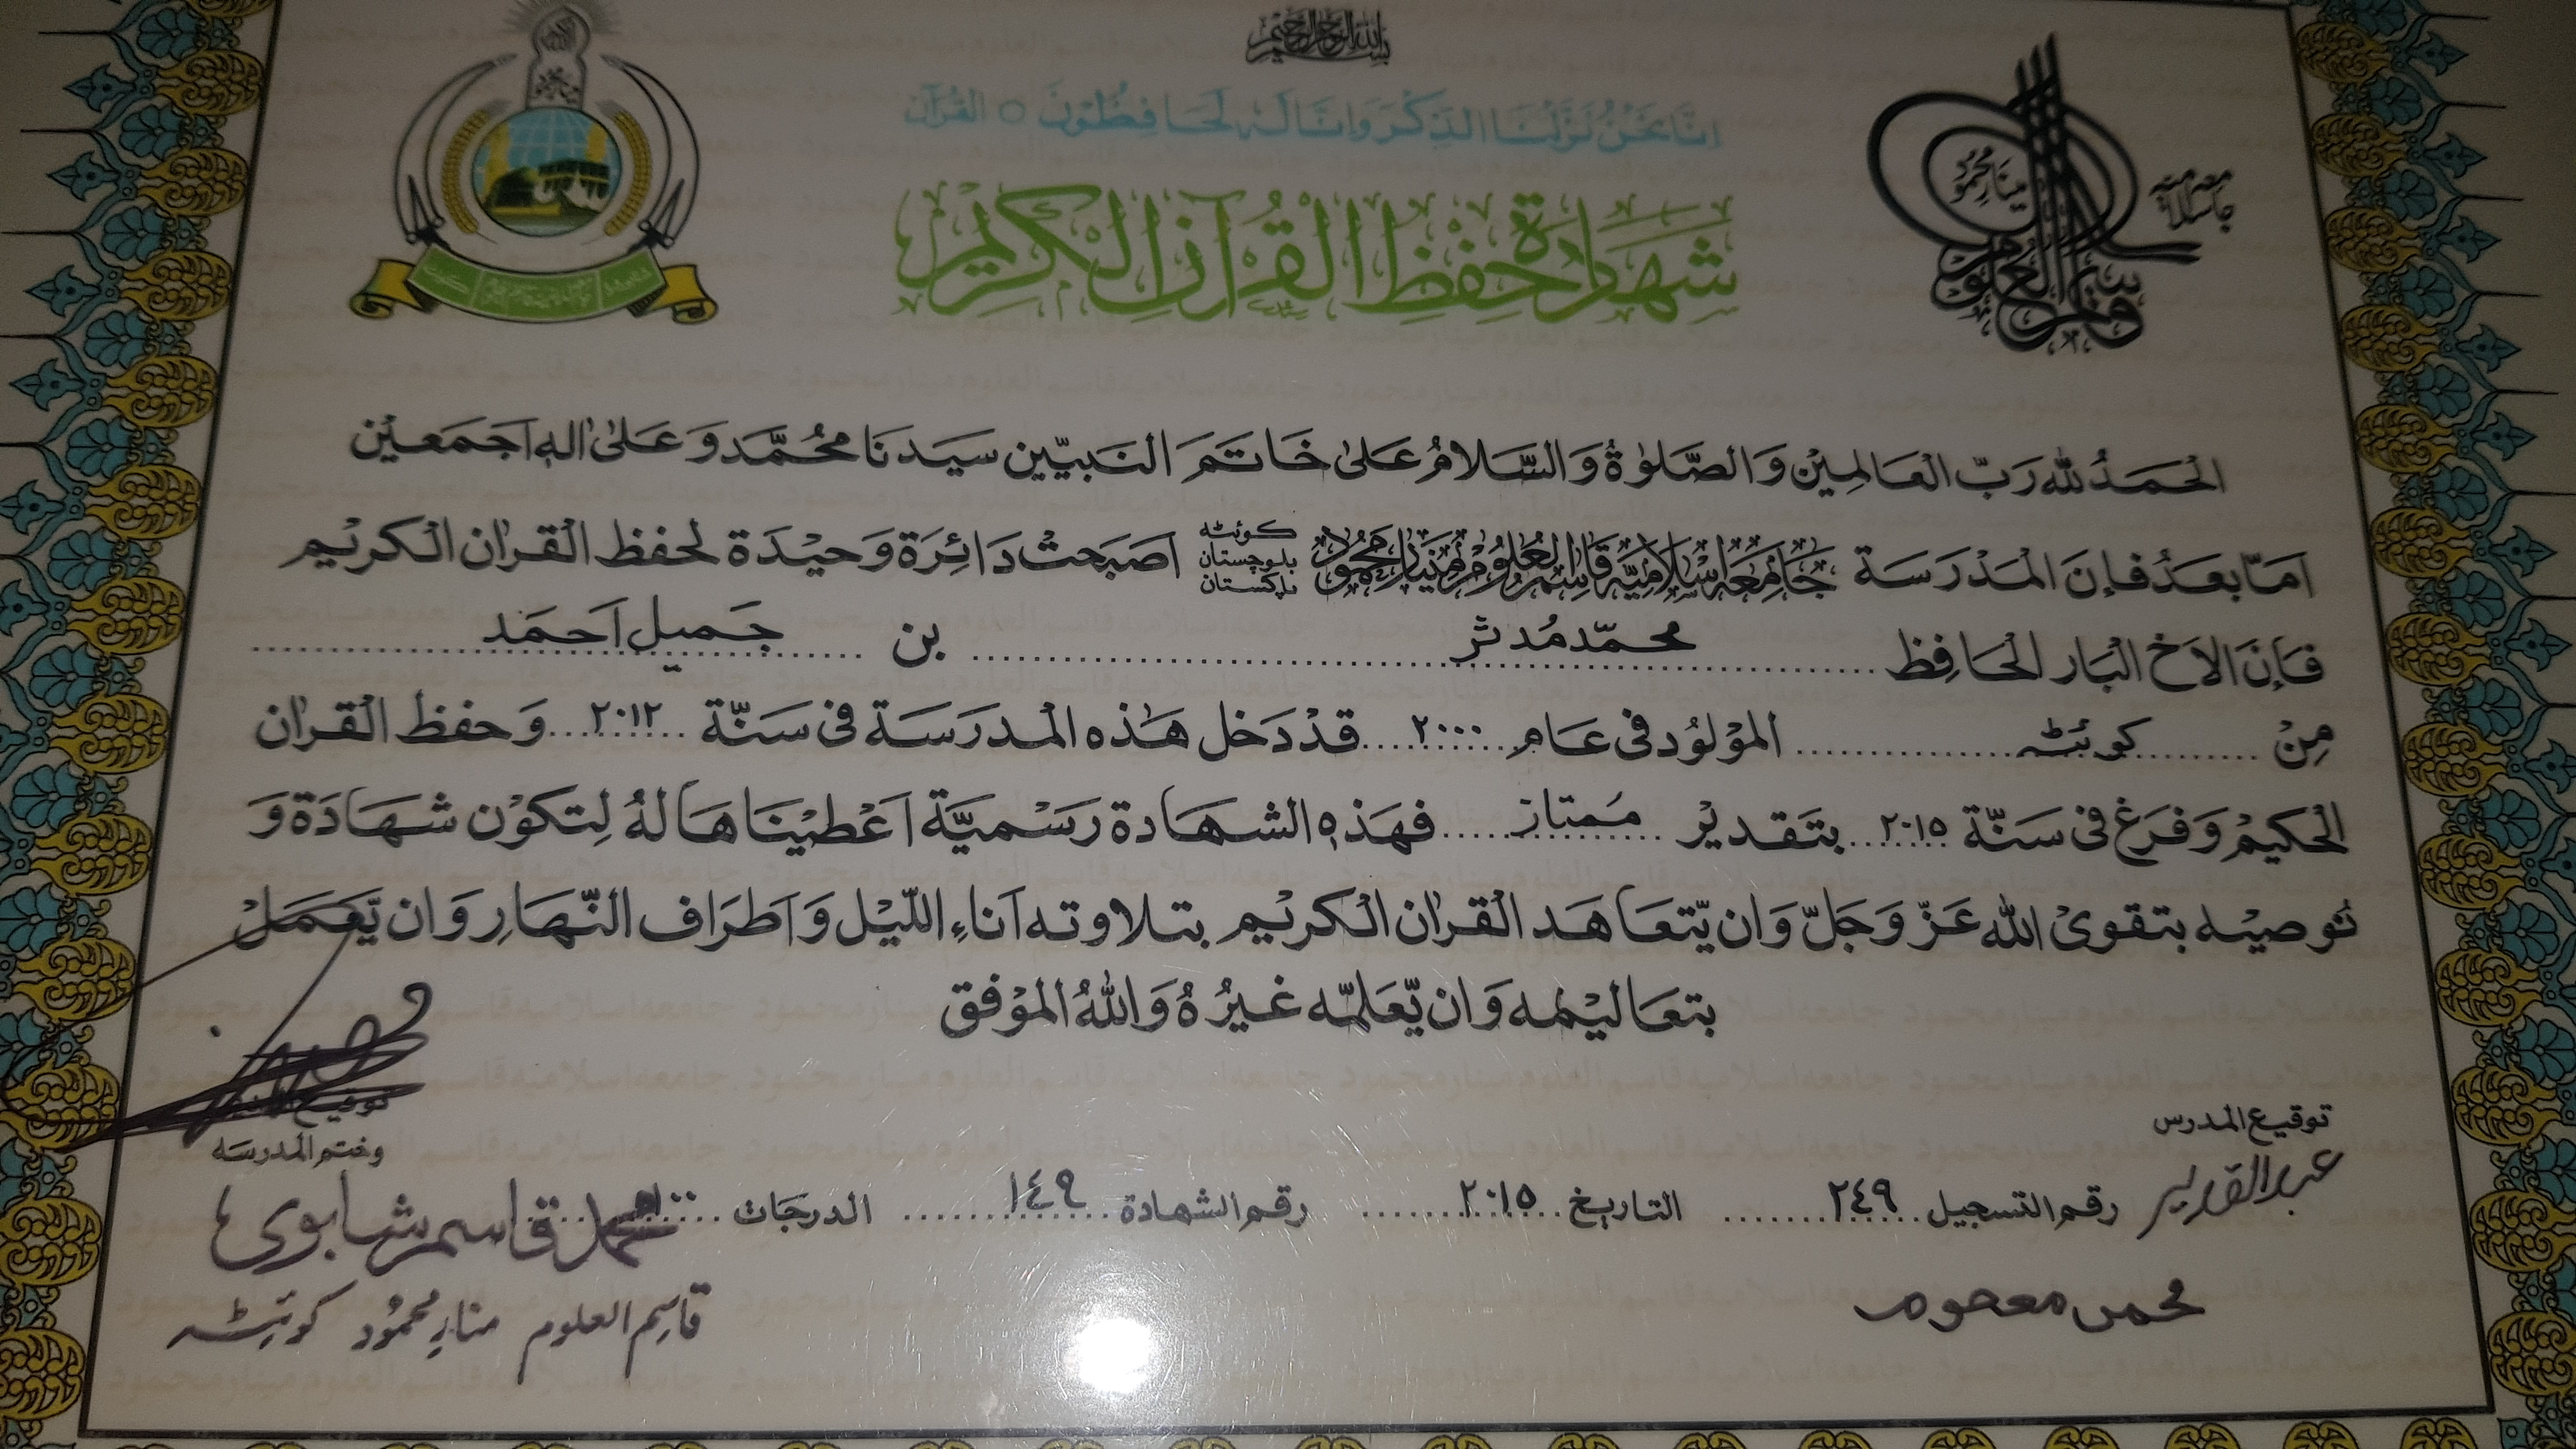 بسم الله الرحمن الرحيم
اِنَّا نَحْنُ نَزَّلْنَا الذِّكْرَ وَاِنَّا لَهٗ لَحَافِظُوْنَ ○ القُرآن
شَهَادَة حِفْظِ الْقُرْآنِ الْكَرِيْم
جامعه اسلاميه
قاسم العلوم
مينار محمود
اَلْحَمَدُ لِلّٰه رَبّ الْعَالَمِيْن وَالصَّلٰوةُ وَالسَّلَامُ عَلىٰ خَاتَمَ النَبيّين سَيَدنَا مُحُمَّد وَعَلىٰ اٰلهٖ اَجَمَعيْن
اَمَّا بعَدُ فَاِنَ الْمَدْرَسَة جَامِعَه اِسْلَامِيَّه قَاسِمُ الْعُلُوْم مِيْنَار مَحْمُوْد كوئٹه بلوچستان پاكستان اَصبَحتْ دَائِرَة وَحيْدَة لحفظ الْقرٰان الْكريْم
فَاِنَ الْاَخْ الْبَار الْحَافِظ محمّد مُدثر بن جَميل اَحمَد
مِنْ كوئٹه المْولوُد فى عَام ٢٠٠٠ قدْ دَخل هَذه الْمدرَسَة فى سَنَّة ٢٠١٢ وَحفظ الْقرٰان
الْحكيْم وَفرَغ فى سَنَّة ٢٠١٥ بتَقديْر مُمتاز فهَذهٖ الشهَادة رَسْميَّة اَعْطيْنَاهَا لهُ لِتكوْن شهَادَة وَ
نوصيْه بتقوىْ الله عَزّ وَجَلّ وَان يّتعَاهَد الْقرٰان الْكريْم بتلاوته اَناءِ اللّيْل وَاَطرَاف النّهَارِ وَان يّعَمَلْ
بتعَاليْمه وَان يّعَلمّه غيرُهُ وَاللهُ الموْفق
توقيع المدرس
عبدالقدير
رقم التسجيل ٢٤٩ التاريخ ٢٠١٥ رقم الشهادة ١٤٩ الدرجات ١٠٠
وختم المدرسه
محمد قاسم شابوى
قاسِم العلوم منارِ محمُود كوئٹہ
محمد معصوم